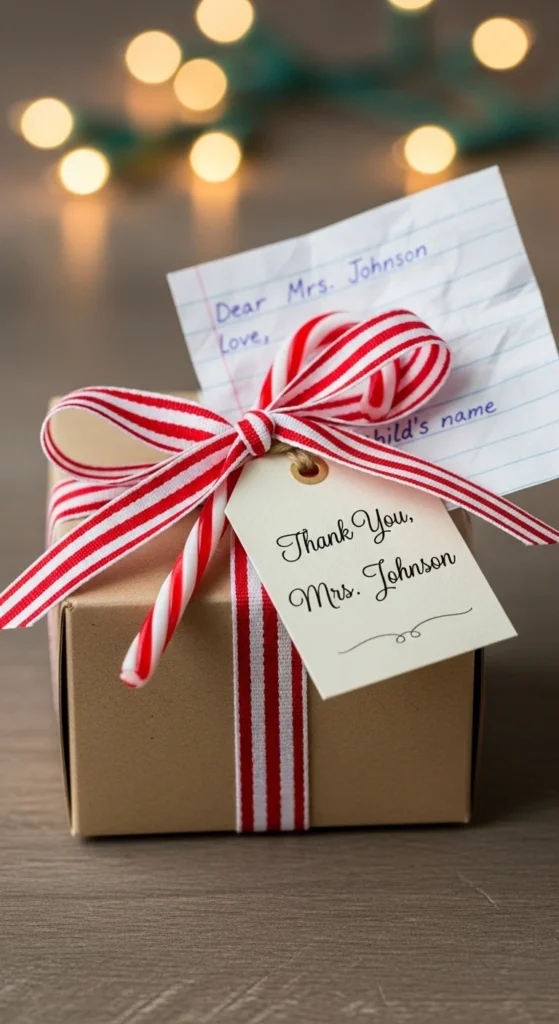 Dear Mrs. Johnson
Love,
child's name
Thank You,
Mrs. Johnson